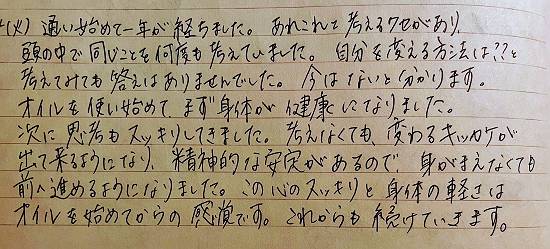 (火) 通い始めて一年が経ちました。あれこれと考えるクセがあり、
頭の中で同じことを何度も考えていました。自分を変える方法は??と
考えてみても答えはありませんでした。今はないと分かります。
オイルを使い始めて、まず身体が健康になりました。
次に思考もスッキリしてきました。考えなくても、変わるキッカケが
出て来るようになり、精神的な安定があるので、身がまえなくても
前へ進めるようになりました。この心のスッキリと身体の軽さは
オイルを始めてからの感覚です。これからも続けていきます。